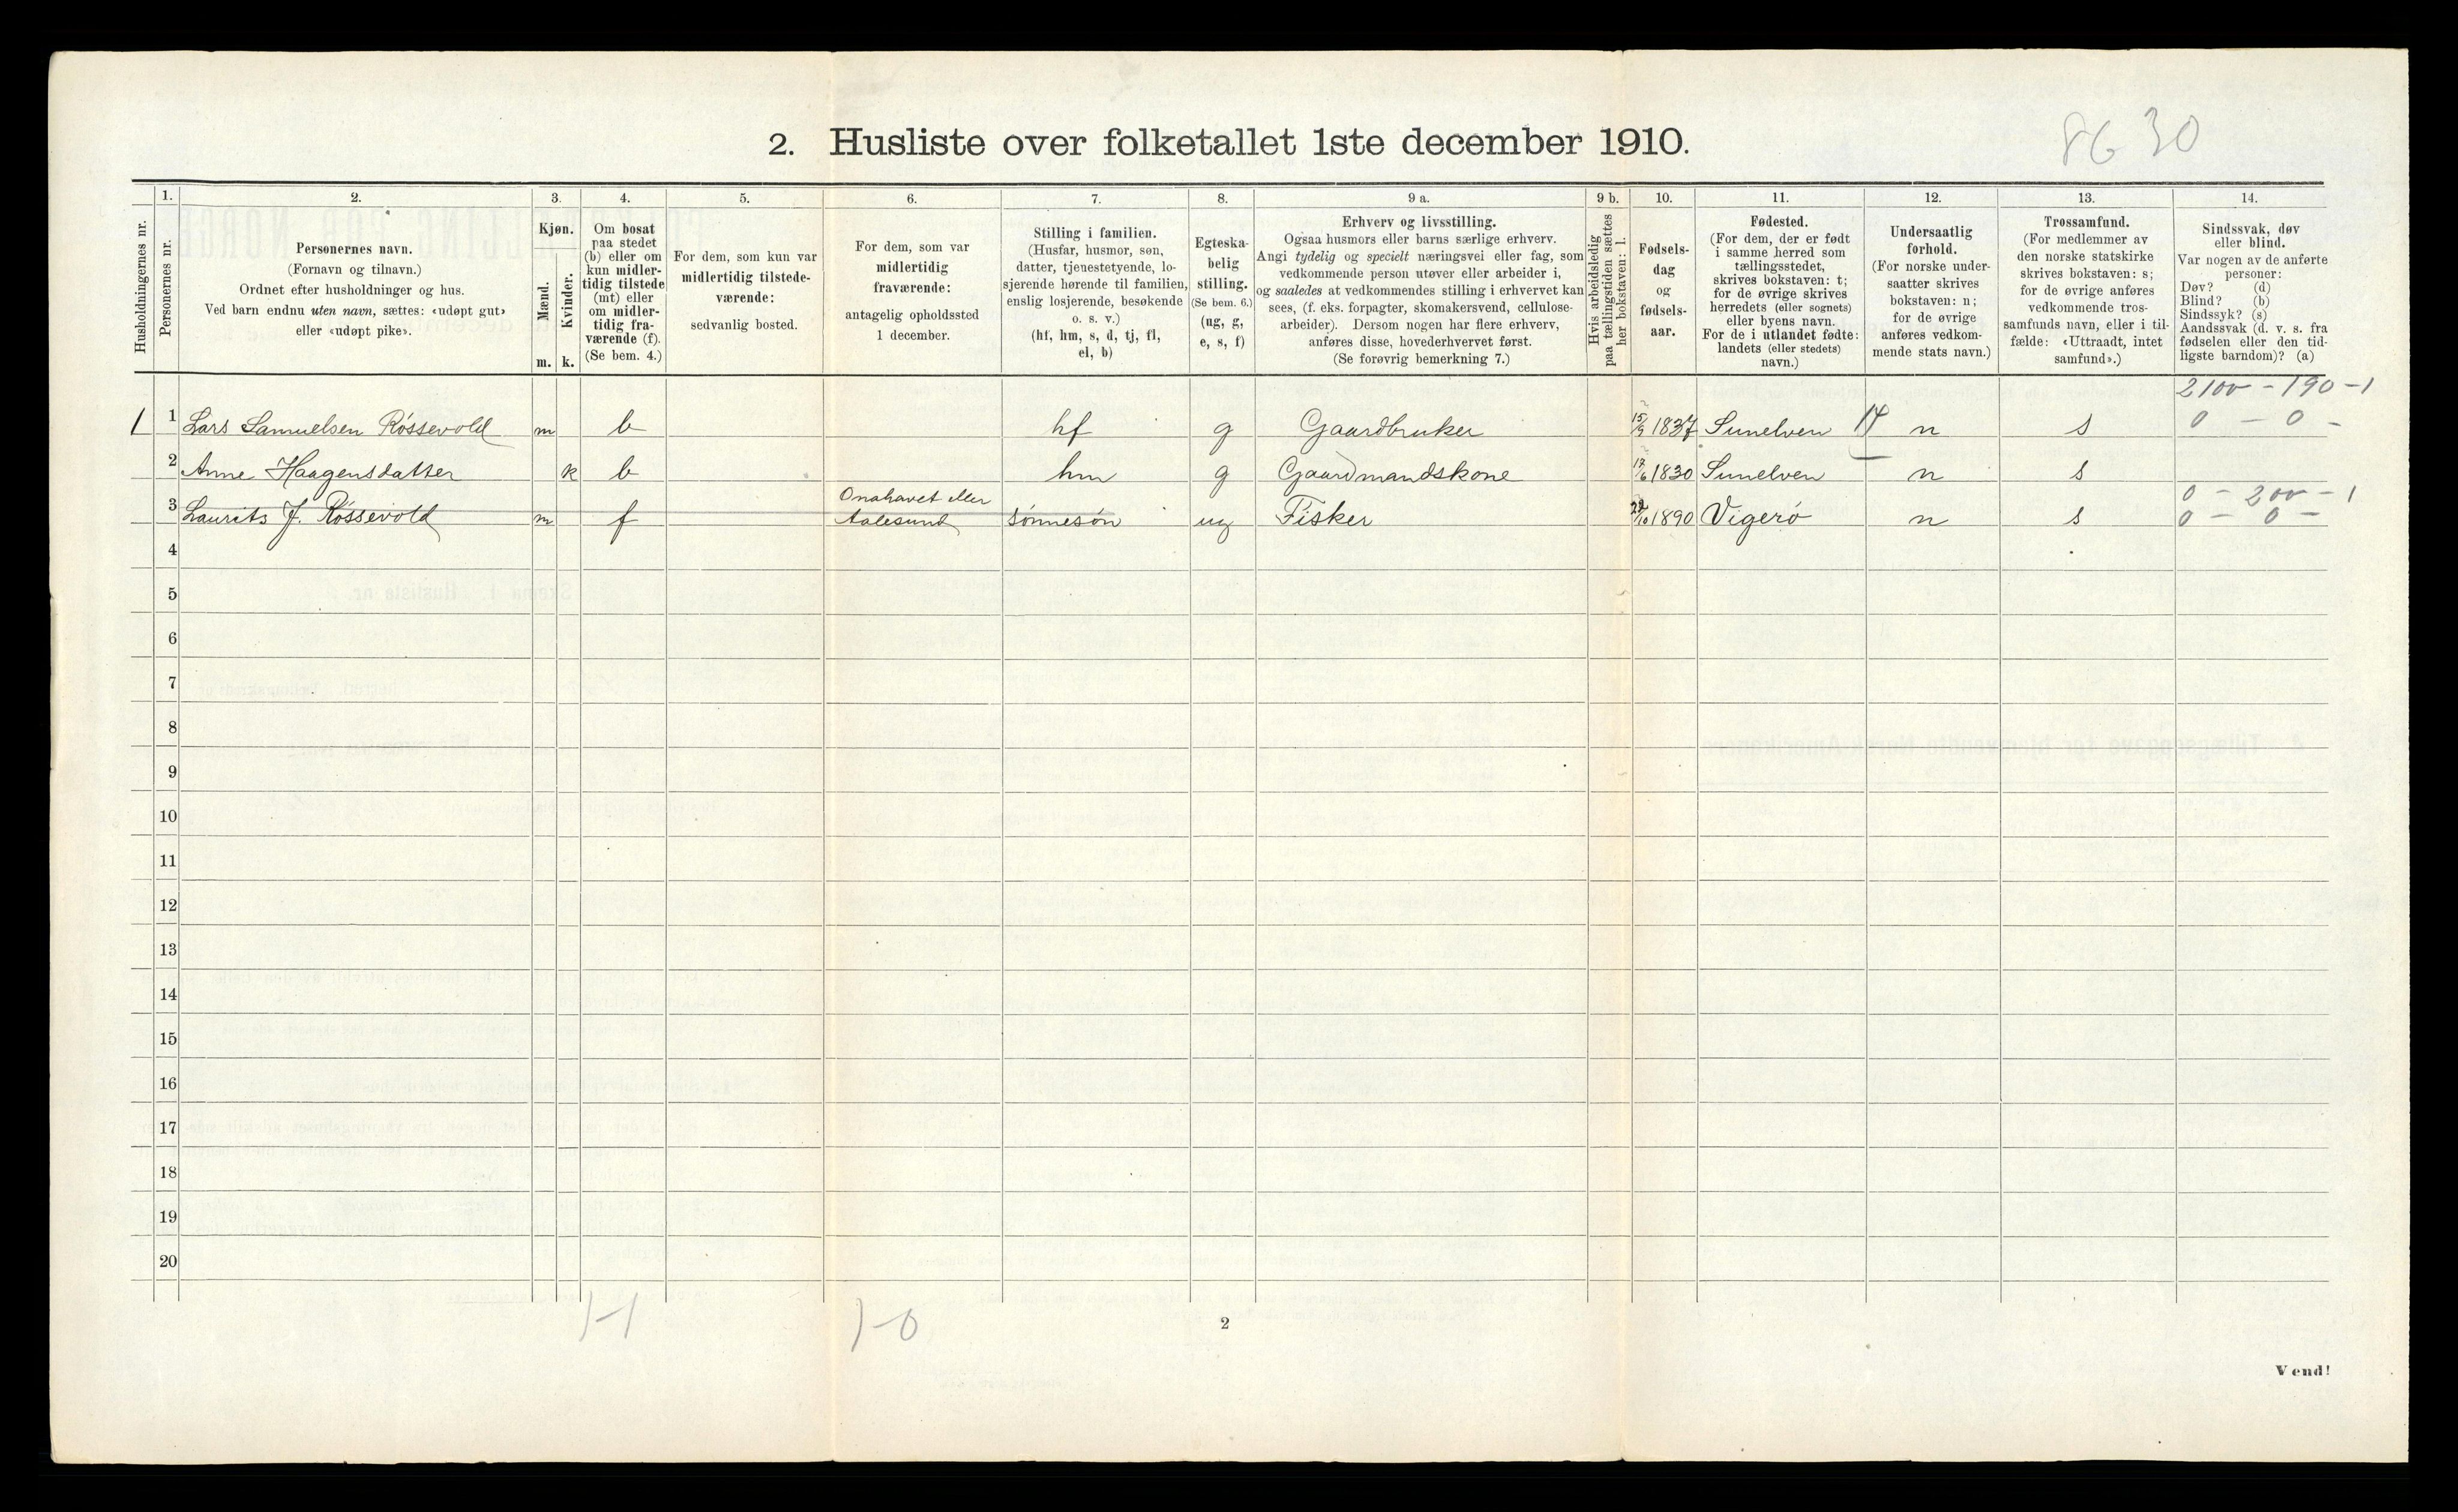 8630
2. Husliste over folketallet 1ste december 1910.
Husholdningernes nr.
1.
Personernes nr.
2.
Personernes navn.
(Fornavn og tilnavn.)
Ordnet efter husholdninger og hus.
Ved barn endnu uten navn, sættes: «udøpt gut»
eller «udøpt pike».
3.
Kjøn.
Mænd.
m.
Kvinder.
k.
4.
Om bosat
paa stedet
(b) eller om
kun midler-
tidig tilstede
(mt) eller
om midler-
tidig fra-
værende (f).
(Se bem. 4.)
5.
For dem, som kun var
midlertidig tilstede-
værende:
sedvanlig bosted.
6.
For dem, som var
midlertidig
fraværende:
antagelig opholdssted
1 december.
7.
Stilling i familien.
(Husfar, husmor, søn,
datter, tjenestetyende, lo-
sjerende hørende til familien,
enslig losjerende, besøkende
o. s. v.)
(hf, hm, s, d, tj, fl,
el, b)
8.
Egteska-
belig
stilling.
(Se bem. 6.)
(ug, g,
e, s, f)
9 a.
Erhverv og livsstilling.
Ogsaa husmors eller barns særlige erhverv.
Angi tydelig og specielt næringsvei eller fag, som
vedkommende person utøver eller arbeider i,
og saaledes at vedkommendes stilling i erhvervet kan
sees, (f. eks. forpagter, skomakersvend, cellulose-
arbeider). Dersom nogen har flere erhverv,
anføres disse, hovederhvervet først.
(Se forøvrig bemerkning 7.)
9 b.
Hvis arbeidsledig
paa tællingstiden sættes
her bokstaven: l.
10.
Fødsels-
dag
og
fødsels-
aar.
11.
Fødested.
(For dem, der er født
i samme herred som
tællingsstedet,
skrives bokstaven: t;
for de øvrige skrives
herredets (eller sognets)
eller byens navn.
For de i utlandet fødte:
landets (eller stedets)
navn.)
12.
Undersaatlig
forhold.
(For norske under-
saatter skrives
bokstaven: n;
for de øvrige
anføres vedkom-
mende stats navn.)
13.
Trossamfund.
(For medlemmer av
den norske statskirke
skrives bokstaven: s;
for de øvrige anføres
vedkommende tros-
samfunds navn, eller i til-
fælde: «Uttraadt, intet
samfund».)
14.
Sindssvak, døv
eller blind.
Var nogen av de anførte
personer:
Døv? (d)
Blind? (b)
Sindssyk? (s)
Aandssvak (d. v. s. fra
fødselen eller den tid-
ligste barndom)? (a)
2100 - 190 - 1
1 1 Lars Samuelsen Róssevold m b hf g Gaardbruker 15/9 1837 Sunelven 14 n s 0 - 0 -
2 Anne Haagensdatter k b hm g Gaardmandskone 17/6 1830 Sunelven n s
Onahavet eller 0 - 200 - 1
3 Laurits J. Róssevold m f Aalesund sónnesón ug Fisker 22/10 1890 Vigeró n s 0 - 0 -
4
5
6
7
8
9
10
11
12
13
14
15
16
17
18
19
20
1-1 1-0
2
Vend!